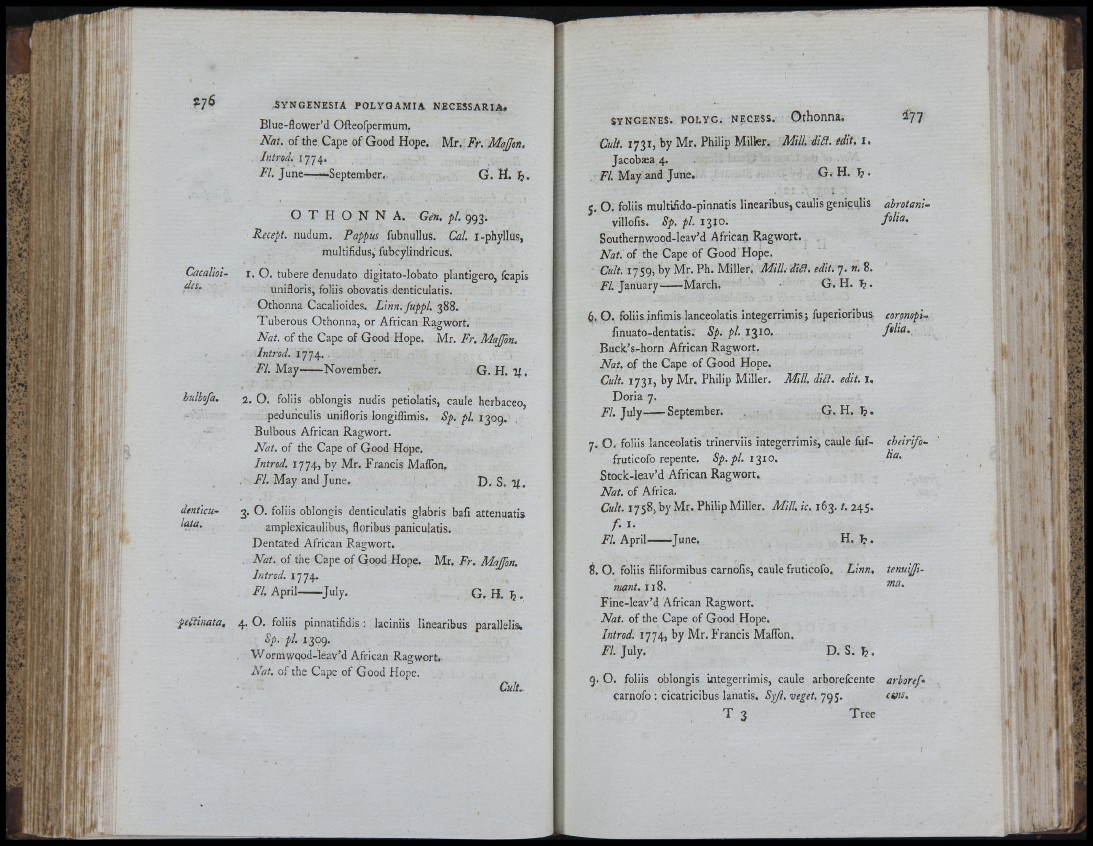 276 SYNGENESIA POLYGAMIA NECESSARIA.
Blue-flower'd Oſteoſpermum.
Nat. of the Cape of Good Hope. Mr. Fr. Maſſon.
Introd. 1774.
Fl. June——September. G. H. ♄.
OTHONNA. Gen. pl. 993.
Recept. nudum. Pappus ſubnullus. Cal. 1-phyllus,
multifidus, ſubcylindricus.
Cacalioi- 1. O. tubere denudato digitato-lobato plantigero, ſcapis
des. unifloris, foliis obovatis denticulatis.
Othonna Cacalioides. Linn. ſuppl. 388.
Tuberous Othonna, or African Ragwort.
Nat. of the Cape of Good Hope. Mr. Fr. Maſſon.
Introd. 1774.
Fl. May——November. G. H. ♃.
bulboſa. 2. O. foliis oblongis nudis petiolatis, caule herbaceo,
pedunculis unifloris longiſſimis. Sp. pl. 1309.
Bulbous African Ragwort.
Nat. of the Cape of Good Hope.
Introd. 1774, by Mr. Francis Maſſon.
Fl. May and June. D. S. ♃.
denticu- 3. O. foliis oblongis denticulatis glabris baſi attenuatis
lata. amplexicaulibus, floribus paniculatis.
Dentated African Ragwort.
Nat. of the Cape of Good Hope. Mr. Fr. Maſſon.
Introd. 1774.
Fl. April——July. G. H. ♄.
pectinata. 4. O. foliis pinnatifidis: laciniis linearibus parallelis.
Sp. pl. 1309.
Wormwood-leav'd African Ragwort.
Nat. of the Cape of Good Hope.
Cult.
SYNGENES. POLYG. NECESS. Othonna. 277
Cult. 1731, by Mr. Philip Miller. Mill. dict. edit. 1.
Jacobæa 4.
Fl. May and June. G. H. ♄.
5. O. foliis multifido-pinnatis linearibus, caulis geniculis abrotani-
villoſis. Sp. pl. 1310. folia.
Southernwood-leav'd African Ragwort.
Nat. of the Cape of Good Hope.
Cult. 1759, by Mr. Ph. Miller. Mill. dict. edit. 7. n. 8.
Fl. January——March. G. H. ♄.
6. O. foliis infimis lanceolatis integerrimis; ſuperioribus coronopi-
ſinuato-dentatis. Sp. pl. 1310. folia.
Buck's-horn African Ragwort.
Nat. of the Cape of Good Hope.
Cult. 1731, by Mr. Philip Miller. Mill. dict. edit. 1.
Doria 7.
Fl. July——September. G. H. ♄.
7. O. foliis lanceolatis trinerviis integerrimis, caule ſuf- cheirifo-
fruticoſo repente. Sp. pl. 1310. lia.
Stock-leav'd African Ragwort.
Nat. of Africa.
Cult. 1758, by Mr. Philip Miller. Mill. ic. 163. t. 245.
f. 1.
Fl. April——June. H. ♄.
8. O. foliis filiformibus carnoſis, caule fruticoſo. Linn. tenuiſſi-
mant. 118. ma.
Fine-leav'd African Ragwort.
Nat. of the Cape of Good Hope.
Introd. 1774, by Mr. Francis Maſſon.
Fl. July. D. S. ♄.
9. O. foliis oblongis integerrimis, caule arboreſcente arboreſ-
carnoſo: cicatricibus lanatis. Syſt. veget. 795. cens.
T 3 Tree